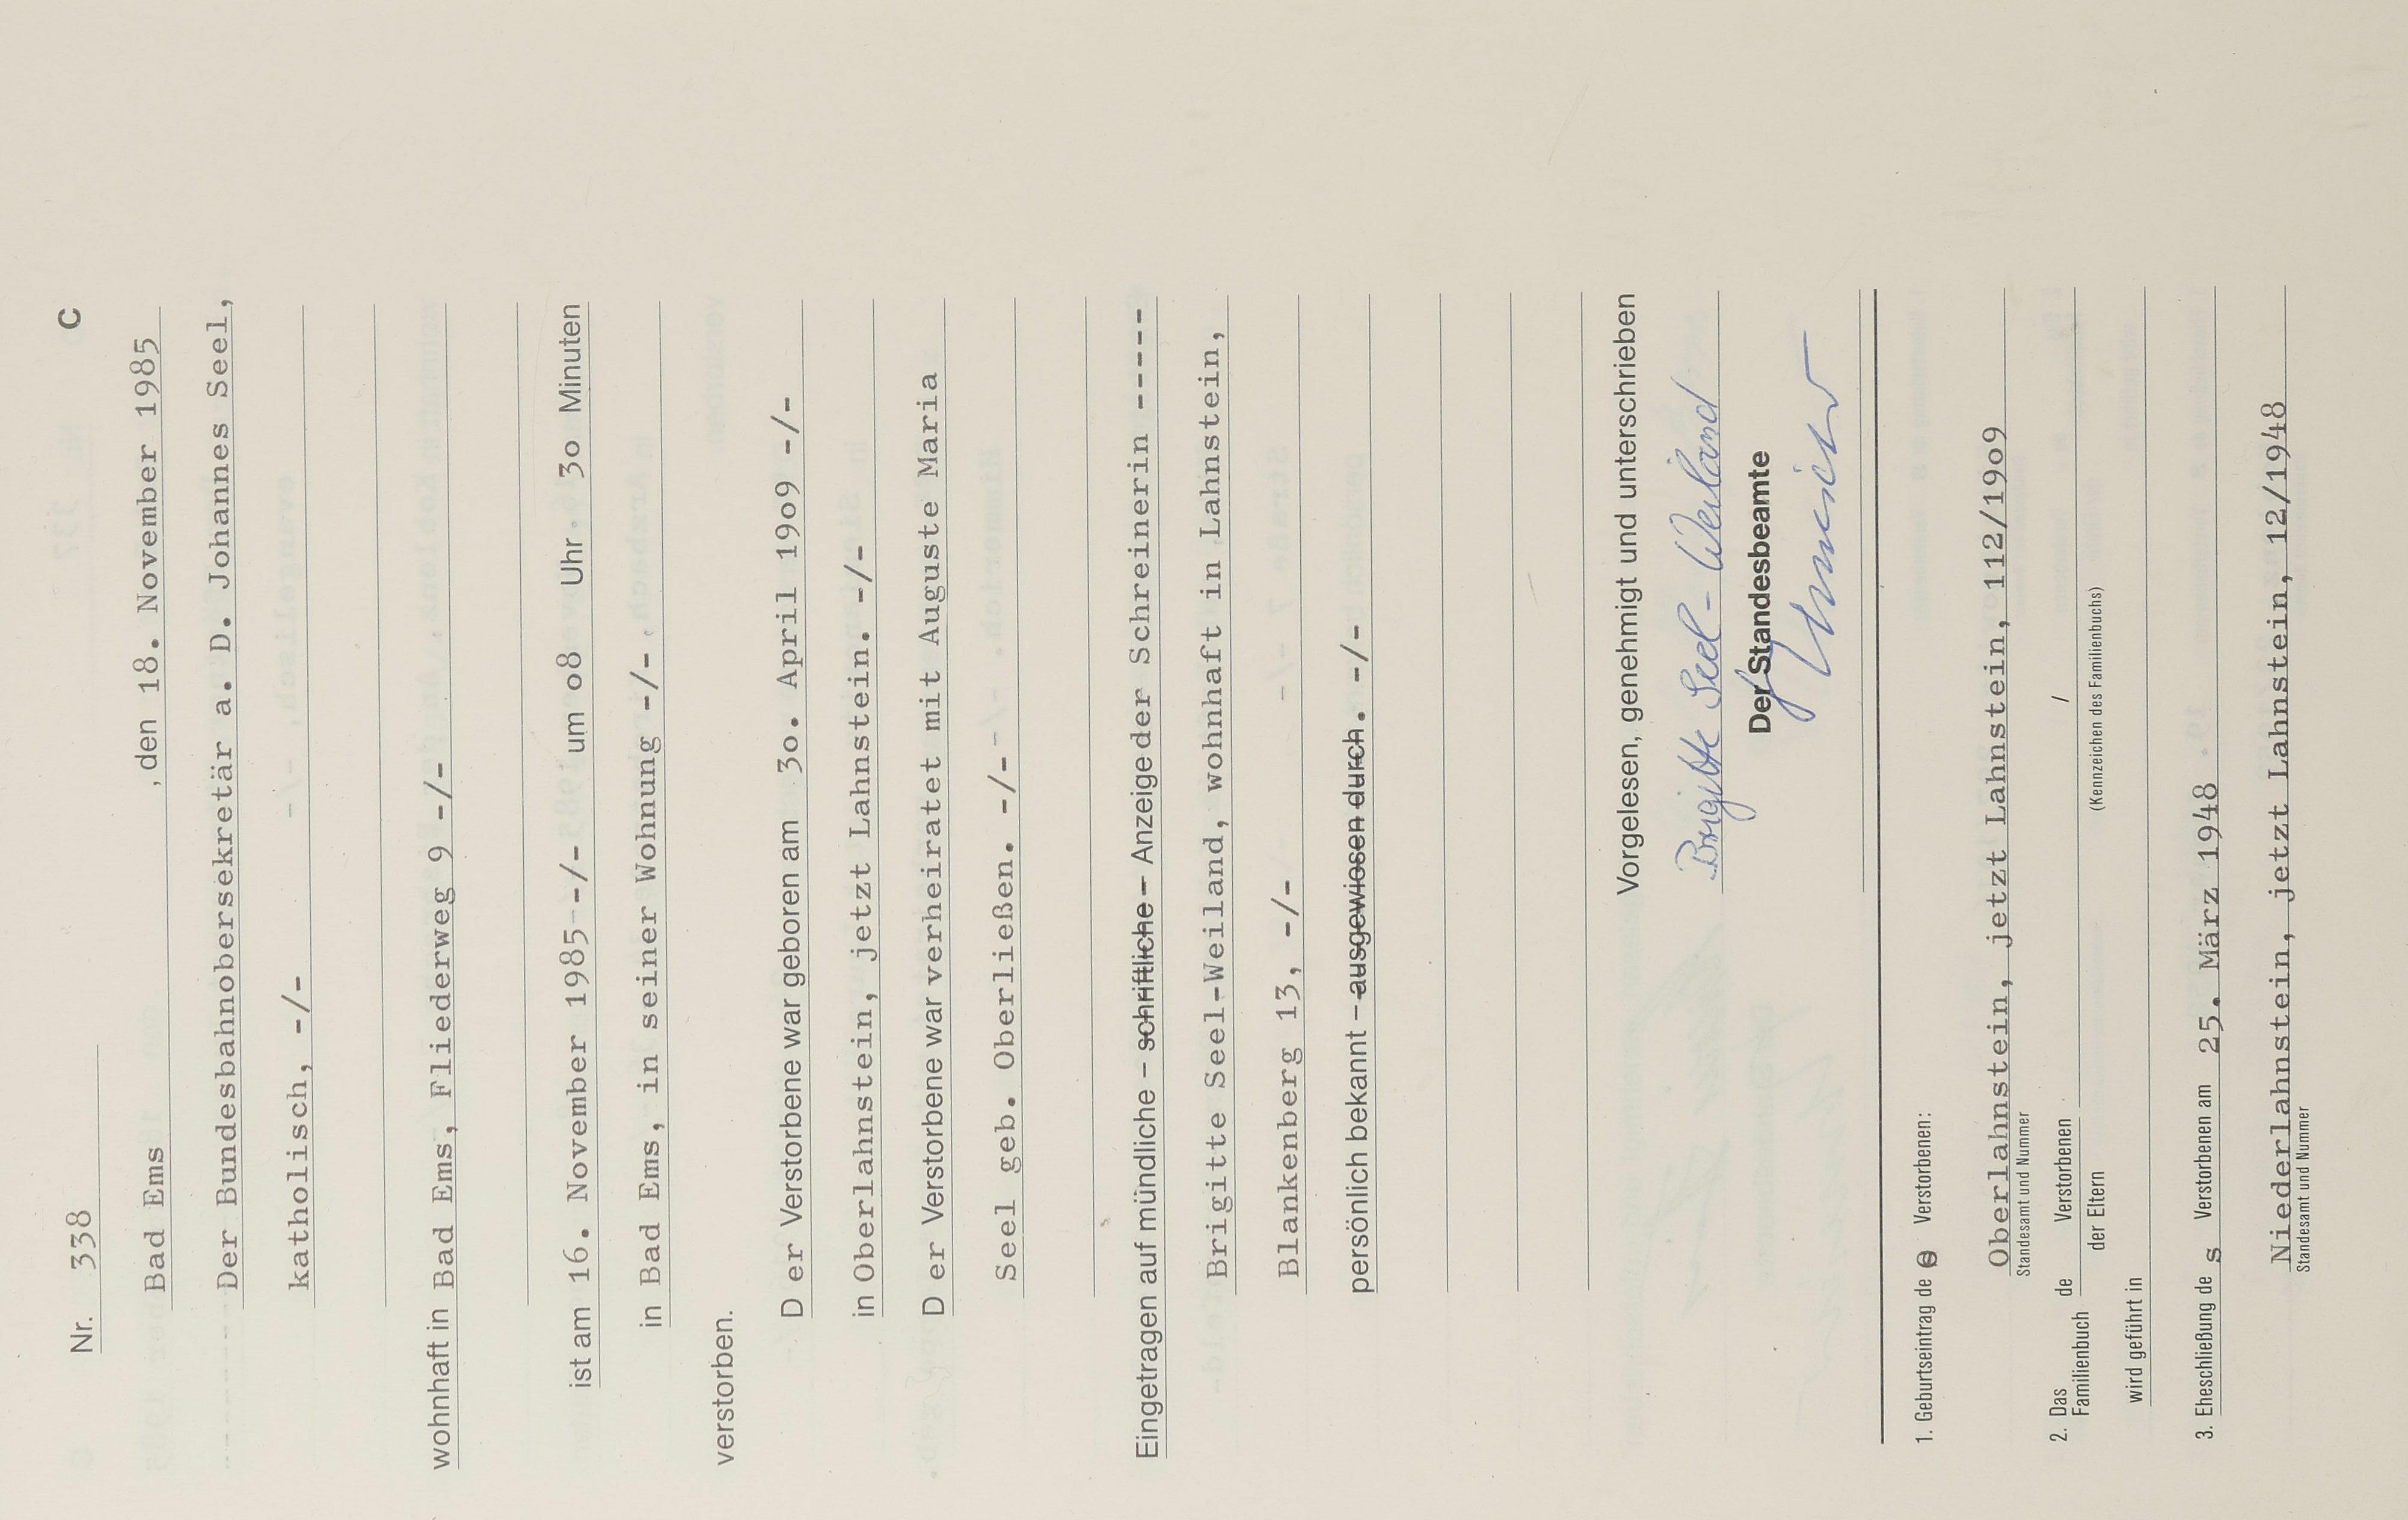 Nr. 338 C
Bad Ems , den 18. November 1985
Der Bundesbahnobersekretär a. D. Johannes Seel,
katholisch, -/-
wohnhaft in Bad Ems, Fliederweg 9 -/-
ist am 16. November 1985--/- um o8 Uhr 3o Minuten
in Bad Ems, in seiner Wohnung -/-
verstorben.
D er Verstorbene war geboren am 3o. April 19o9 -/-
in Oberlahnstein, jetzt Lahnstein. -/-
D er Verstorbene war verheiratet mit Auguste Maria
Seel geb. Oberließen. -/-
Eingetragen auf mündliche – schriftliche – Anzeige der Schreinerin -----
Brigitte Seel-Weiland, wohnhaft in Lahnstein,
Blankenberg 13, -/-
persönlich bekannt – ausgewiesen durch. -/-
Vorgelesen, genehmigt und unterschrieben
Brigitte Seel-Weiland
Der Standesbeamte
1. Geburtseintrag de s Verstorbenen:
Oberlahnstein, jetzt Lahnstein, 112/19o9
Standesamt und Nummer
2. Das Familienbuch de Verstorbenen /
der Eltern (Kennzeichen des Familienbuchs)
wird geführt in
3. Eheschließung de s Verstorbenen am 25. März 1948
Niederlahnstein, jetzt Lahnstein, 12/1948
Standesamt und Nummer